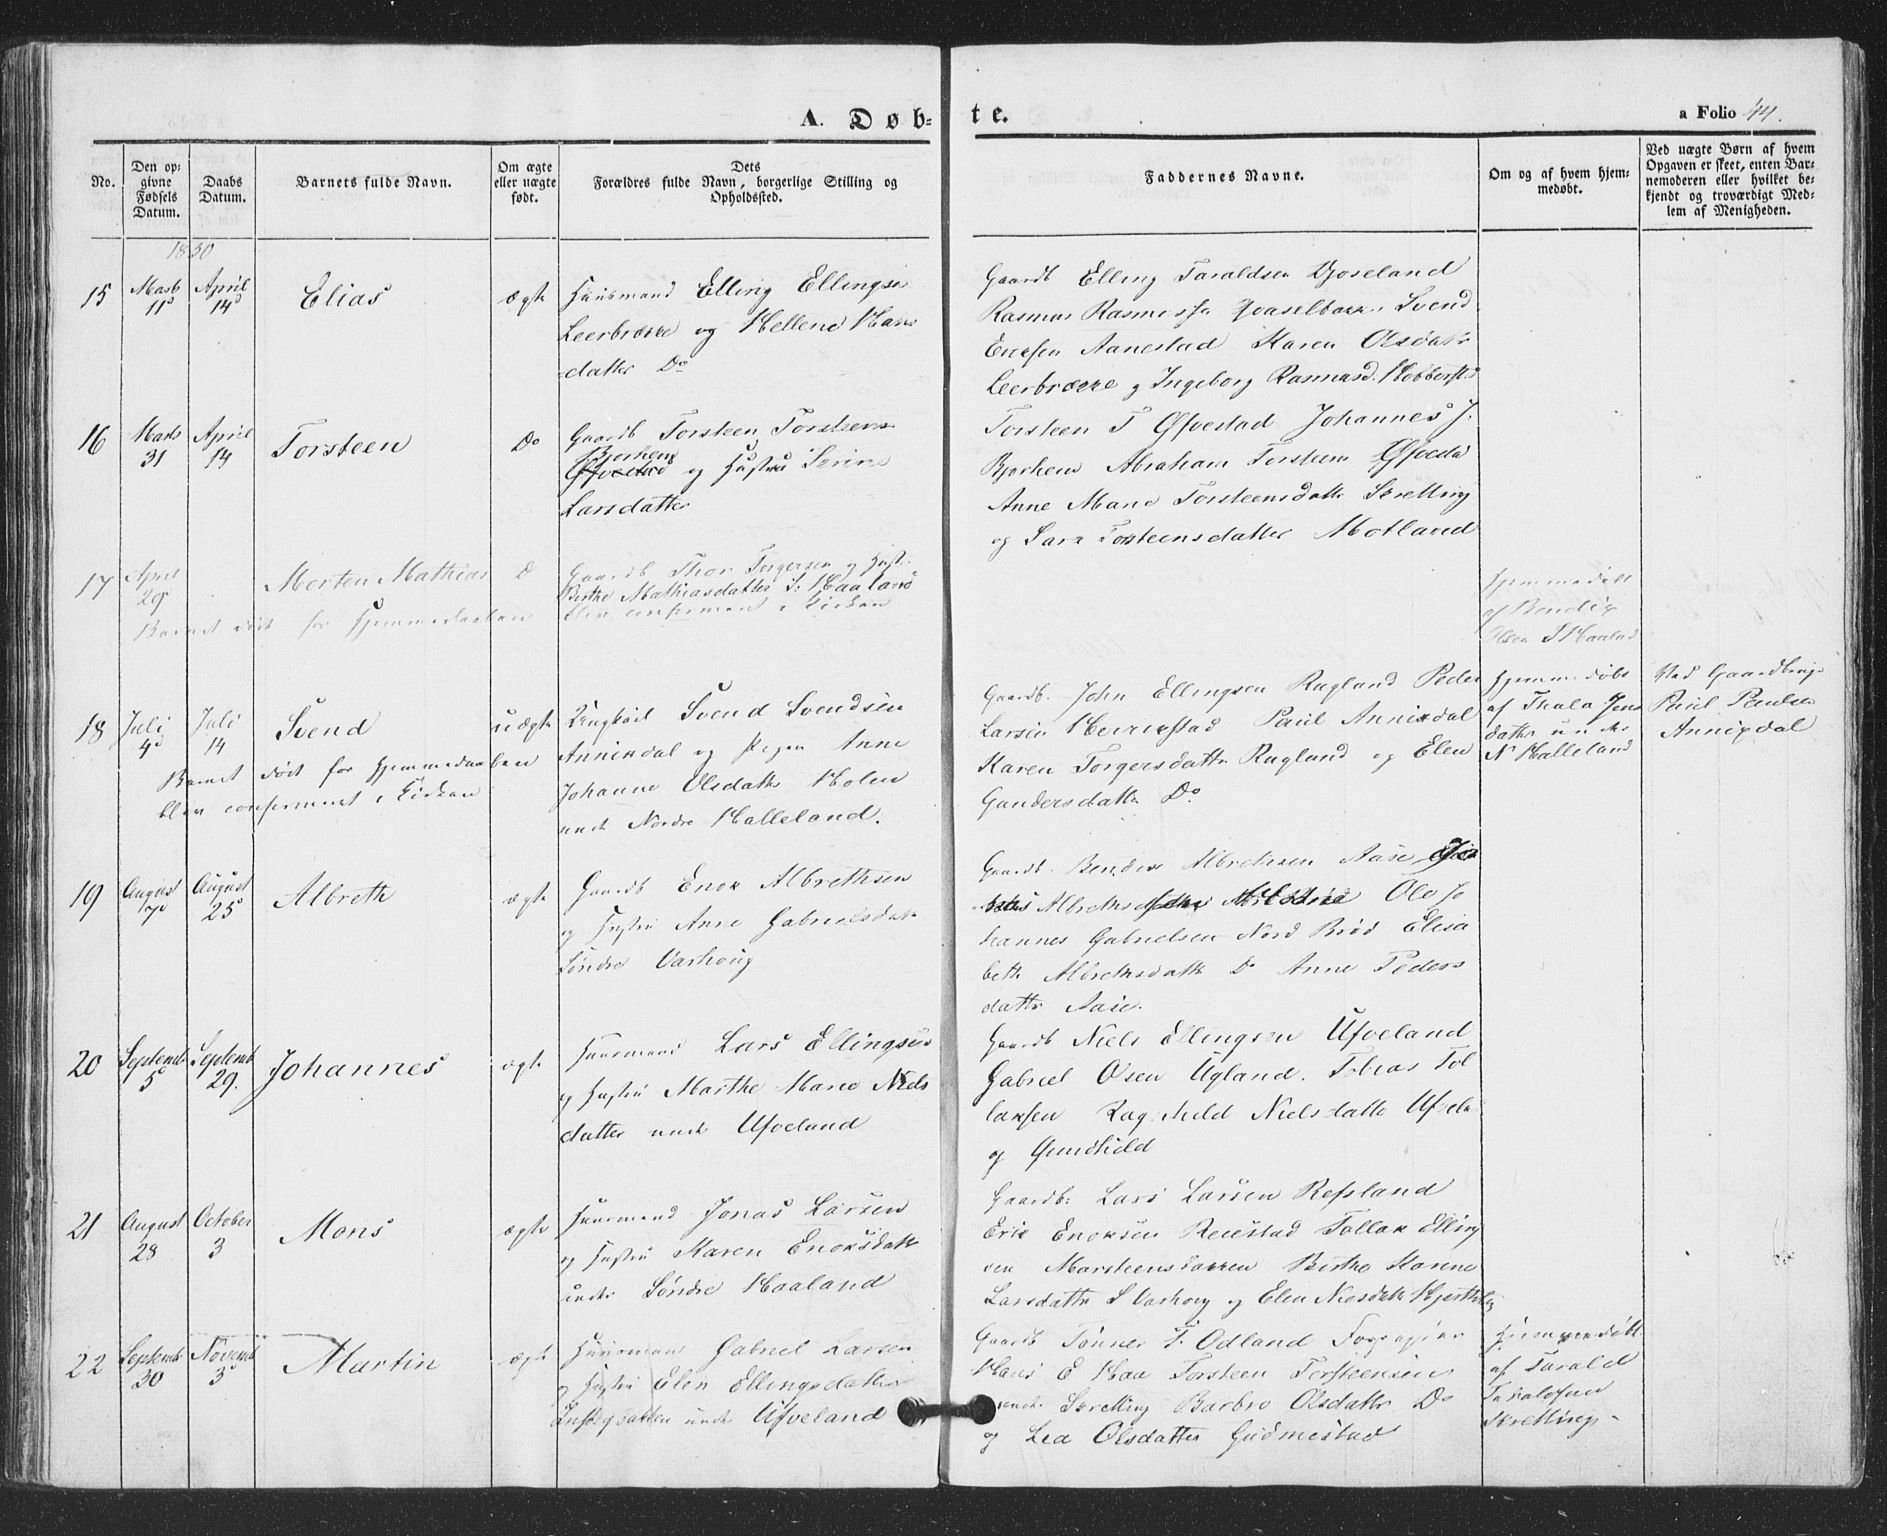 A. Døb-te.
a Folio 44.
No.
Den op-
givne
Fødsels
Datum.
Daabs
Datum.
Barnets fulde Navn.
Om ægte
eller uægte
født.
Dets
Forældres fulde Navn, borgerlige Stilling og
Opholdssted.
Faddernes Navne.
Om og af hvem hjem-
medøbt.
Ved uægte Børn af hvem
Opgaven er skeet, enten Bar-
nemoderen eller hvilket be-
kjendt og troværdigt Med-
lem af Menigheden.
15
Marts
11
April
14
Elias
ægte
Huusmand Elling Ellingsen
Leerbrække og Hellene Hans
datter Do
Gaardb Elling Taraldsen
Rasmus Rasmussen Svend
Ericsen Aanestad Karen Olsdatr
Leerbrække og Ingeborg Rasmusd.
16
Marts
31
April
14
Torsteen
Do
Gaardb Torsteen Torsteens
Bjorhem
og Hustru
Larsdatter
Torsteen T Øfvestad Johannes J.
Bjorhem Abraham Torsteens Øfvesta
Anne Marie Torsteensdattr Skretting
og Sara Torsteensdatter Motland
17
April
29
Morten Mathias
D
Gaardb Thor Torgersen og Hust.
Birthe Mathiasdatter S. Haaland
blev confirmeret i Kirken
Barnet død for Hjemmedaaben
Hjemmedøbt
af Bendix
Olsen S Haaland
18
Juli
4
Juli
14
Svend
uægte
Ungkarl Svend Svendsen
Annixdal og Pigen Anne
Johanne Olsdattr Holen
undr Nordre Halleland.
Barnet død for Hjemmedaaben
blev confirmeret i Kirken
Gaardb. John Ellingsen Ragland Peder
Larsen Paul Annixdal
Karen Torgersdattr Ragland og Elen
Gundersdattr Do
Hjemmedøbt
af Thala Jens
dattr undr
N Halleland
Ved Gaardbruger
Paul Paulsen
Annixdal
19
August
7
August
25
Albreth
ægte
Gaardb Enok Albrethsen
og Hustru Anne Gabrielsdatr
Søndre Varhoug
Gaardb. Albrethsen Aase
Ole Jo
hannes Gabrielsen Nord Brød Elisa
beth Albrethsdattr Do Anne Peders
dattr Aase.
20
Septembr
5
Septembr
29.
Johannes
ægte
Huusmand Lars Ellingsen
og Hustru Marthe Marie Niels
datter undr Ufveland
Gaardb Niels Ellingsen Ufveland
Gabriel Olsen Ugland. Tobias Tol
laksen Ragnhild Nielsdattr Ufvela
og Gundhild
21
August
28
October
3
Mons
ægte
Huusmand Jonas Larsen
og Hustru Karen Enoksdattr
undr Søndre Haaland
Gaardb: Lars Larsen Refsland
Eric Enoksen Reiestad Tollak Elling
sen Birthe Karine
Larsdattr S Varhoug og Elen Nielsdattr
22
Septembr
30
Novembr
3
Martin
ægte
Huusmand Gabriel Larsen
og Hustru Elen Ellingsdatter
undr Ufveland
Gaardb Tønnes T. Odland
Hans E Haa Torsteen Torsteensen
Skretting Barbro Olsdattr Do
og Lea Olsdatter Gudmestad
Hjemmedøbt
af Tarald
Taraldsen
Skretting